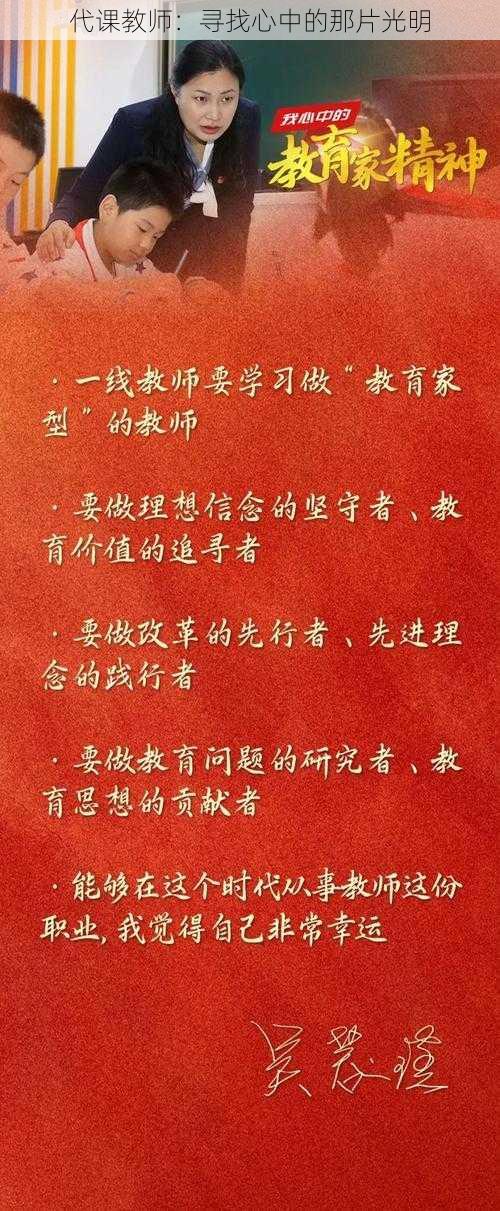 代课教师：寻找心中的那片光明
我心中的
教育家精神
· 一线教师要学习做“教育家
型”的教师
· 要做理想信念的坚守者、教
育价值的追寻者
· 要做改革的先行者、先进理
念的践行者
· 要做教育问题的研究者、教
育思想的贡献者
· 能够在这个时代从事教师这份
职业，我觉得自己非常幸运